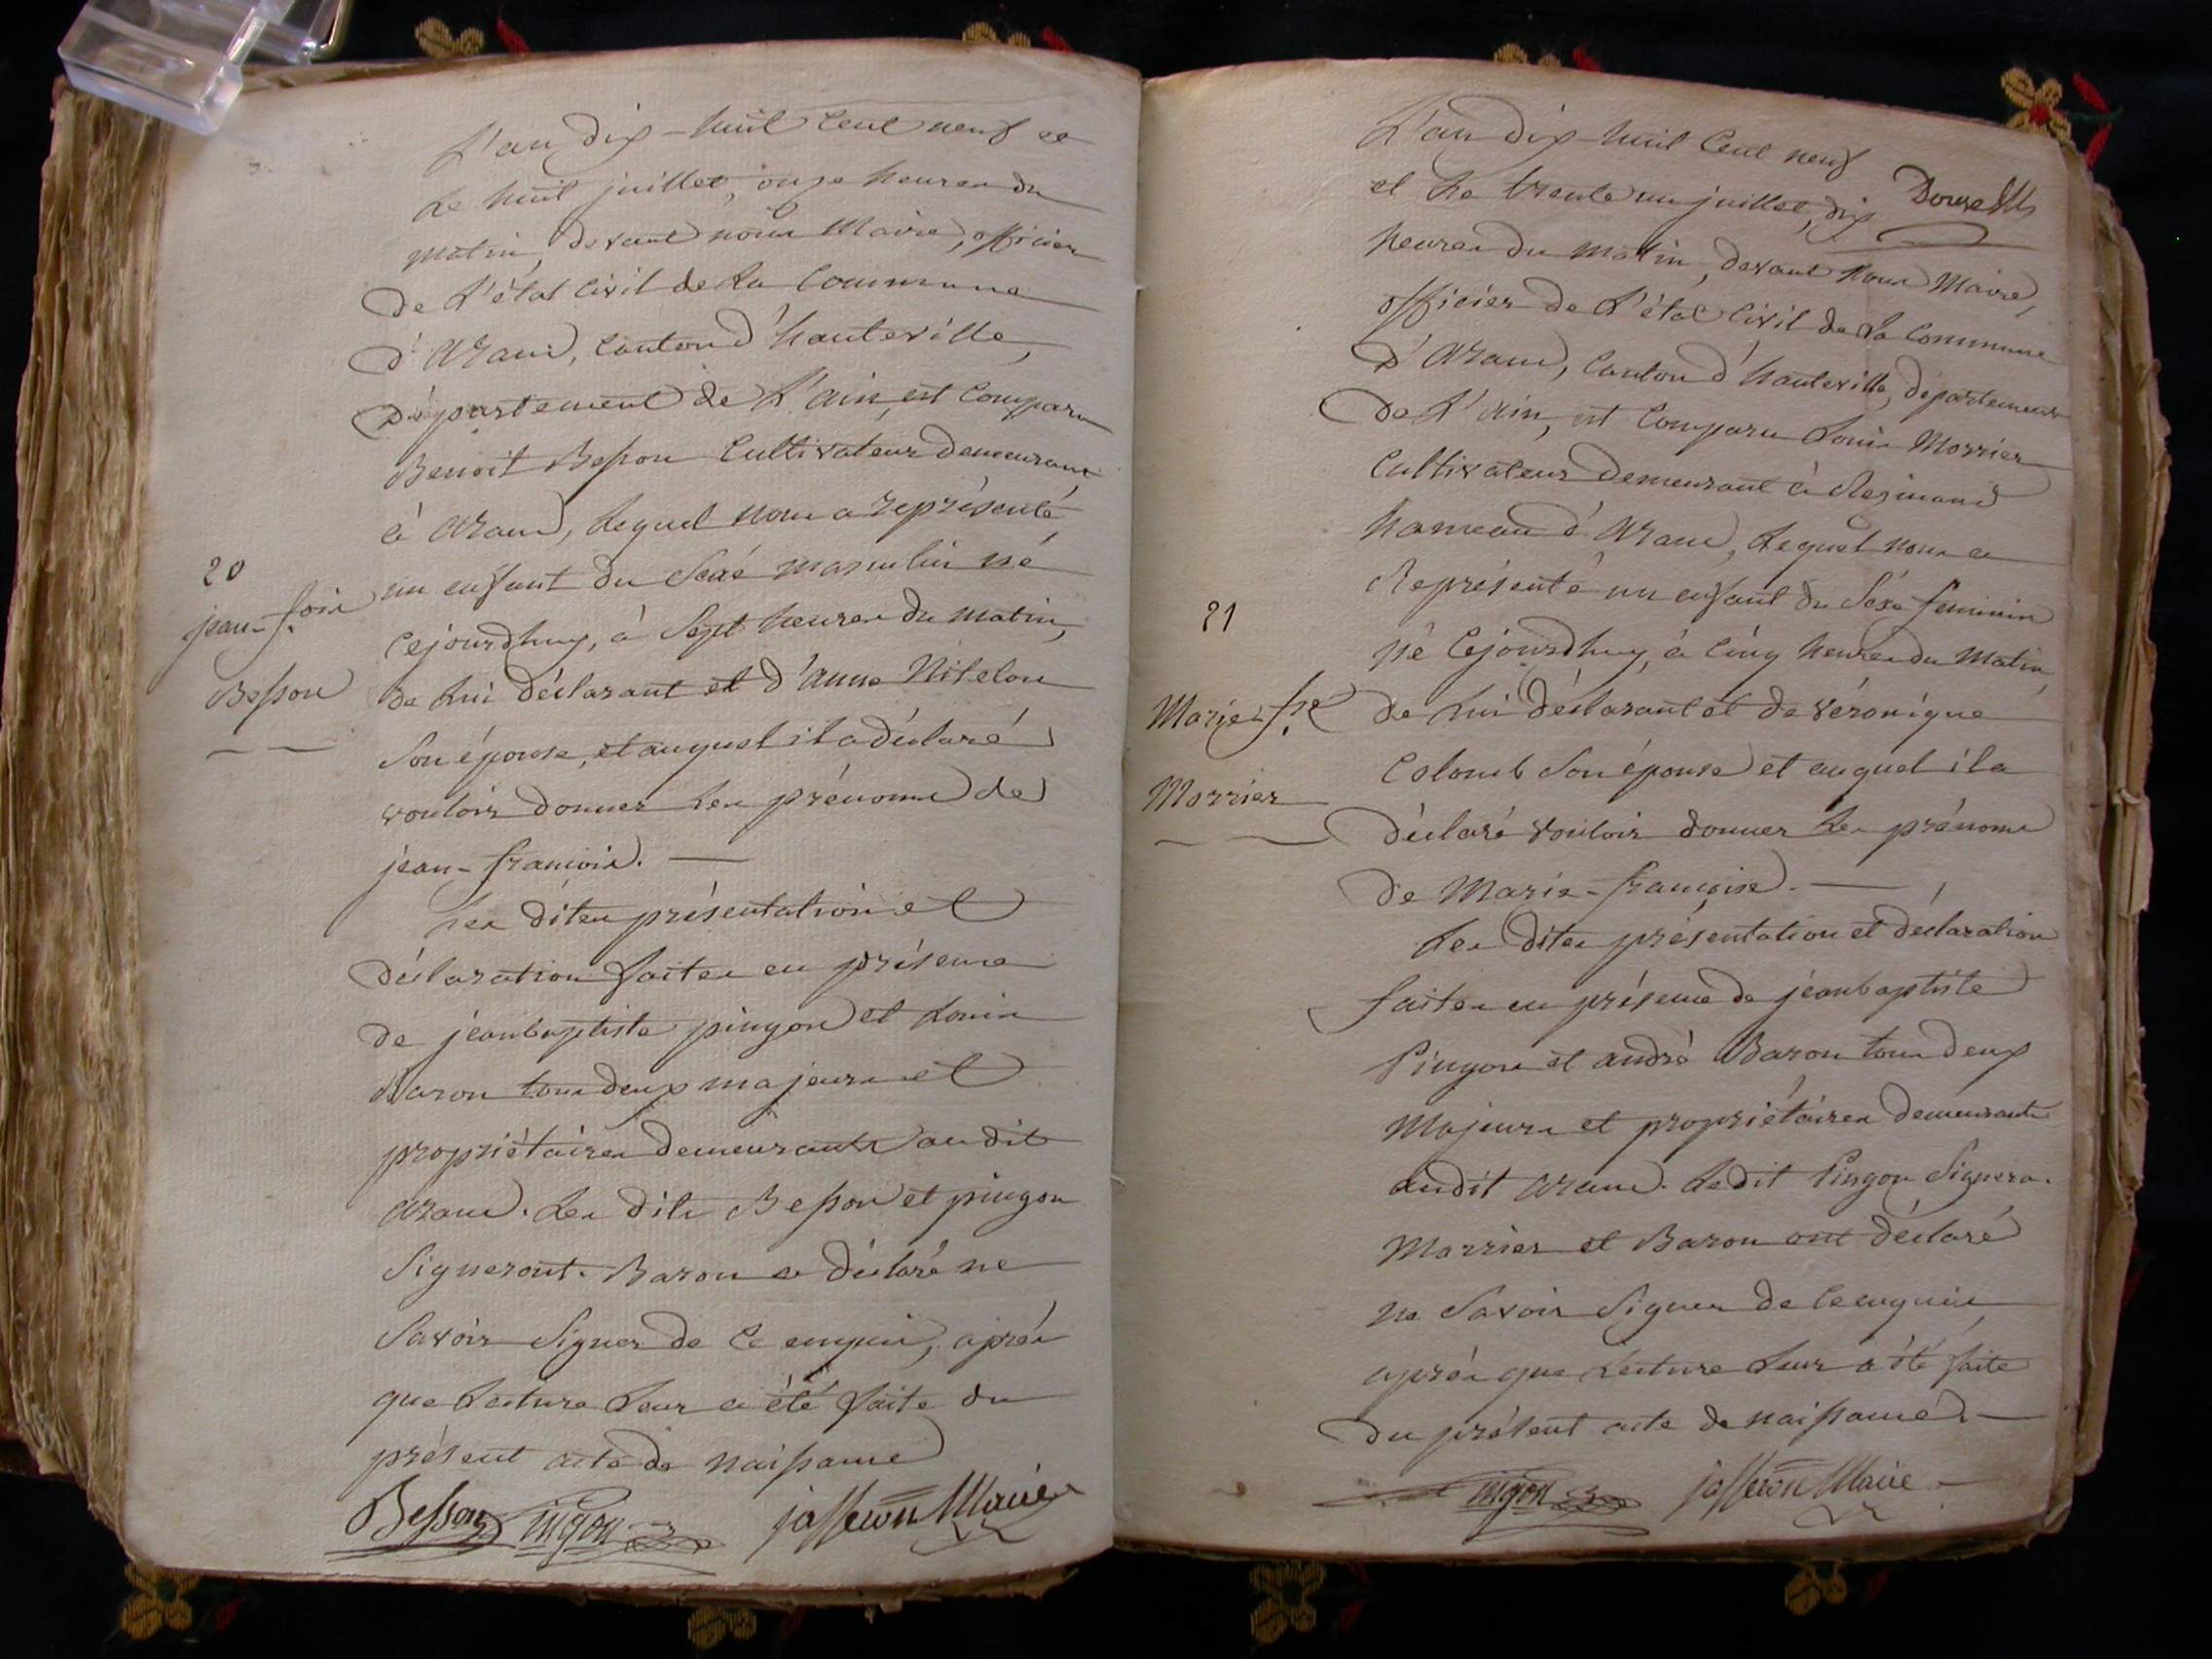 L'an dix-huit cent neuf et
le huit juillet, onze heures du
matin, devant nous Maire, officier
de l'état civil de la Commune
d'Aranc, canton d'hauteville,
département de L'ain, est comparu
Benoit Besson Cultivateur demeurant
à Aranc, lequel nous a représenté
un enfant du Sexe masculin né
20
jean-fois
Besson
cejourdhuy, à Sept heures du matin,
de lui déclarant et d'anne Nitelon
Son épouse, et auquel il a déclaré
vouloir donner les prénoms de
jean-francois.
Les dites présentation et
déclaration faites en présence
de jeanbaptiste pingon et Louis
Baron tous deux majeurs et
propriétaires demeurants audit
Aranc. Les dits Besson et pingon
Signeront. Baron a déclaré ne
Savoir Signer de ce enquis, après
que Lecture Leur a été faite du
présent acte de naissance
Besson pingon josseron Maire
L'an dix-huit Cent neuf
et le trente un juillet, dix
heures du matin, devant nous Maire,
officier de L'état Civil de la Commune
d'Aranc, Canton d'hauteville, département
de L'ain, est comparu Louis Morrier
Cultivateur demeurant à Resinand
hameau d'Aranc, Lequel nous a
Représenté un enfant du Séxe feminin
21
Marie-fse
Morrier
né Cejourdhuy, à cinq heures du Matin,
de Lui déclarant et de véronique
Colomb Son épouse et auquel il a
déclaré vouloir donner Les prénoms
de Marie-francoise.
Les dites présentation et déclaration
faites en présence de jeanbaptiste
Pingon et andré Baron tous deux
Majeurs et propriétaires demeurants
audit Aranc. Ledit Pingon Signera.
Morrier et Baron ont déclaré
ne Savoir Signer de ce enquis,
après que Lecture Leur a été faite
du présent acte de naissance.
pingon josseron Maire